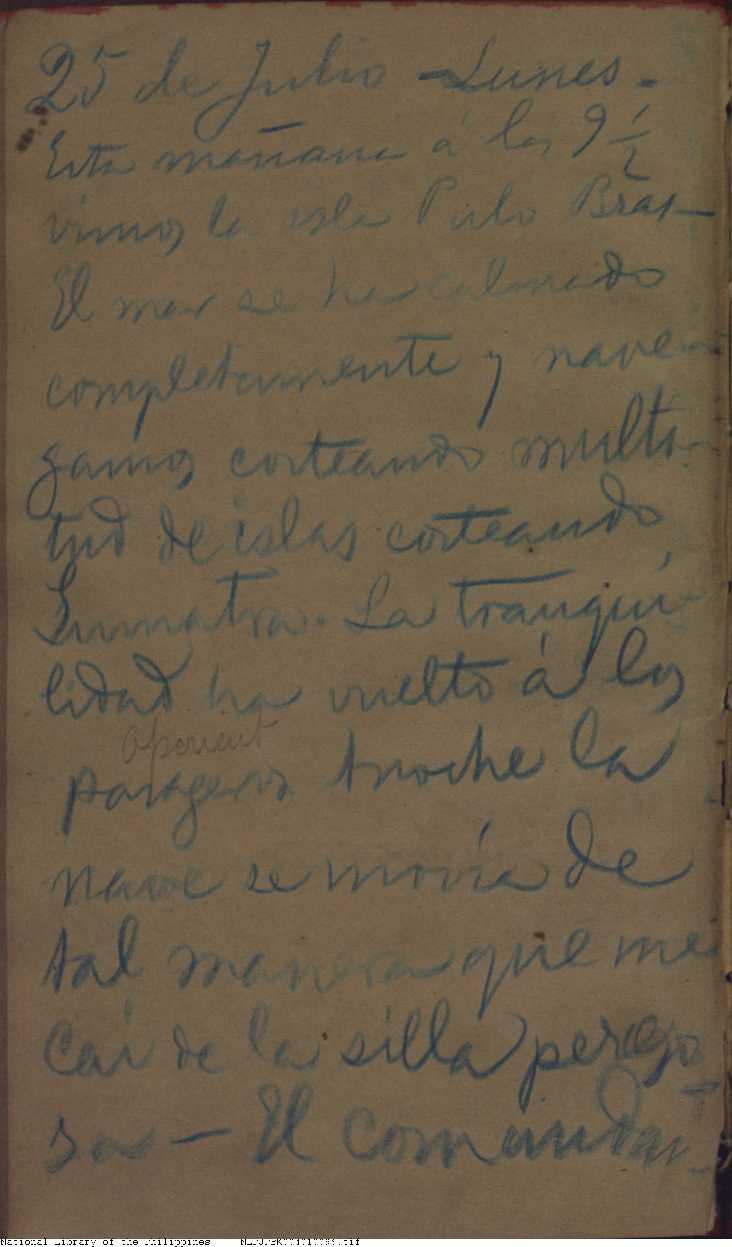 25 de Julio - Lunes -
Esta mañana á las 9 1/2
vimos la isla Pulo Bras -
El mar se ha calmado
completamente y nave-
gamos costeando multi-
tud de islas costeando
Sumatra. La tranqui-
lidad ha vuelto á los
pasageros Anoche la
nave se movía de
tal manera que me
caí de la silla perezo-
sa - El comandan-
National Library of the Philippines